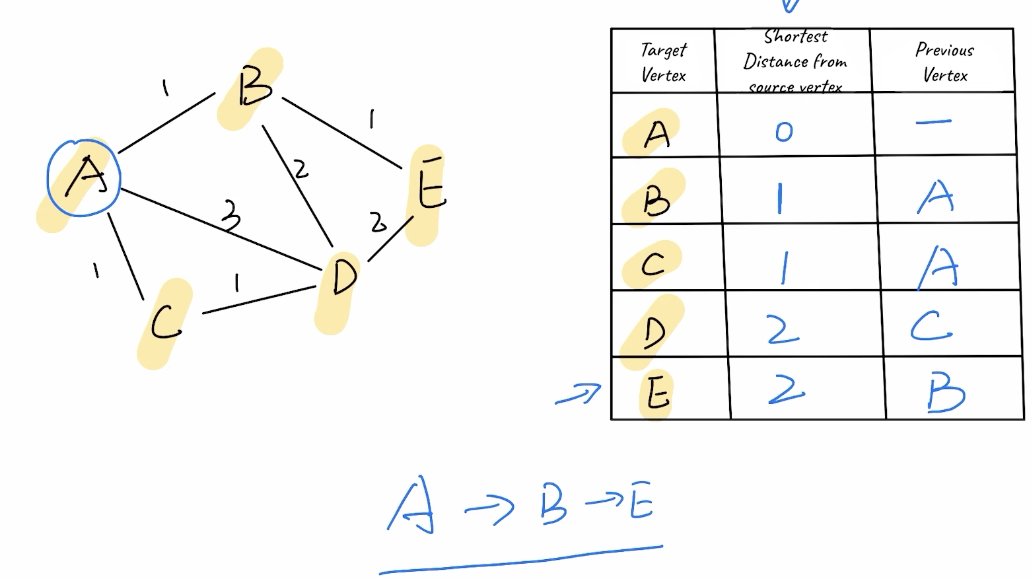 B
1
1
A
2
E
3
2
1
D
1
C
Target Vertex
Shortest Distance from source vertex
Previous Vertex
A 0 —
B 1 A
C 1 A
D 2 C
→ E 2 B
A → B → E